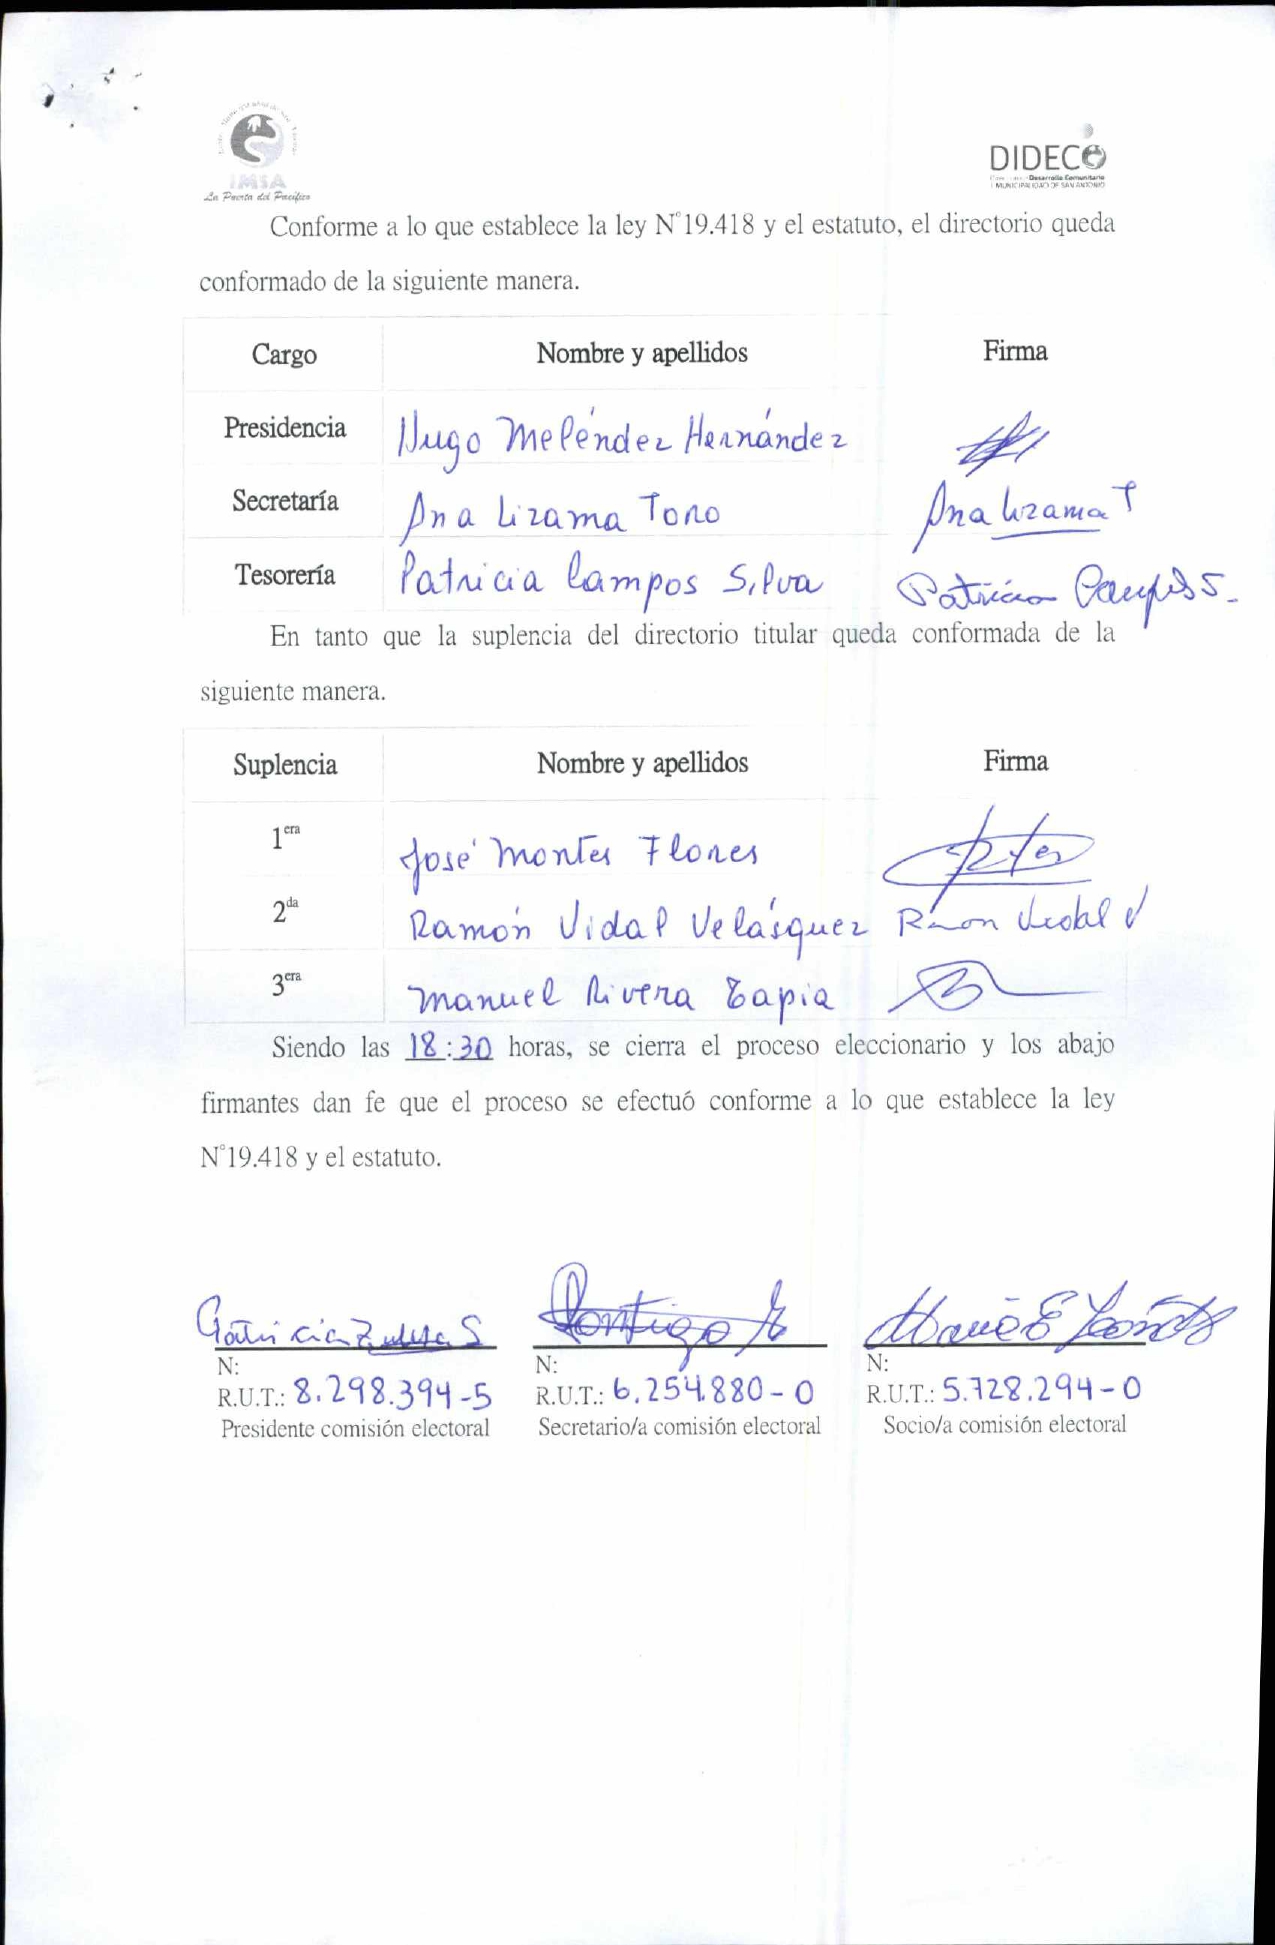 IMSA
La Puerta del Pacífico
DIDECO
Desarrollo Comunitario
I MUNICIPALIDAD DE SAN ANTONIO
Conforme a lo que establece la ley N°19.418 y el estatuto, el directorio queda
conformado de la siguiente manera.
Cargo Nombre y apellidos Firma
Presidencia Hugo Meléndez Hernández
Secretaría Ana Lizama Toro Ana Lizama T
Tesorería Patricia Campos Silva Patricia Campos S.
En tanto que la suplencia del directorio titular queda conformada de la
siguiente manera.
Suplencia Nombre y apellidos Firma
1era José Montes Flores
2da Ramón Vidal Velásquez Ramon Vidal V
3era Manuel Rivera Tapia
Siendo las 18:30 horas, se cierra el proceso eleccionario y los abajo
firmantes dan fe que el proceso se efectuó conforme a lo que establece la ley
N°19.418 y el estatuto.
N: N: N:
R.U.T.: 8.298.394-5 R.U.T.: 6.254.880-0 R.U.T.: 5.728.294-0
Presidente comisión electoral Secretario/a comisión electoral Socio/a comisión electoral